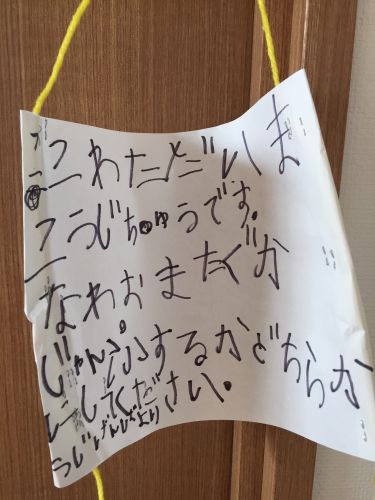 ここわただいま
こうじちゅうです。
なわおまたぐか
じゃんぷするかどちらか
にしてください。
うじげんばより